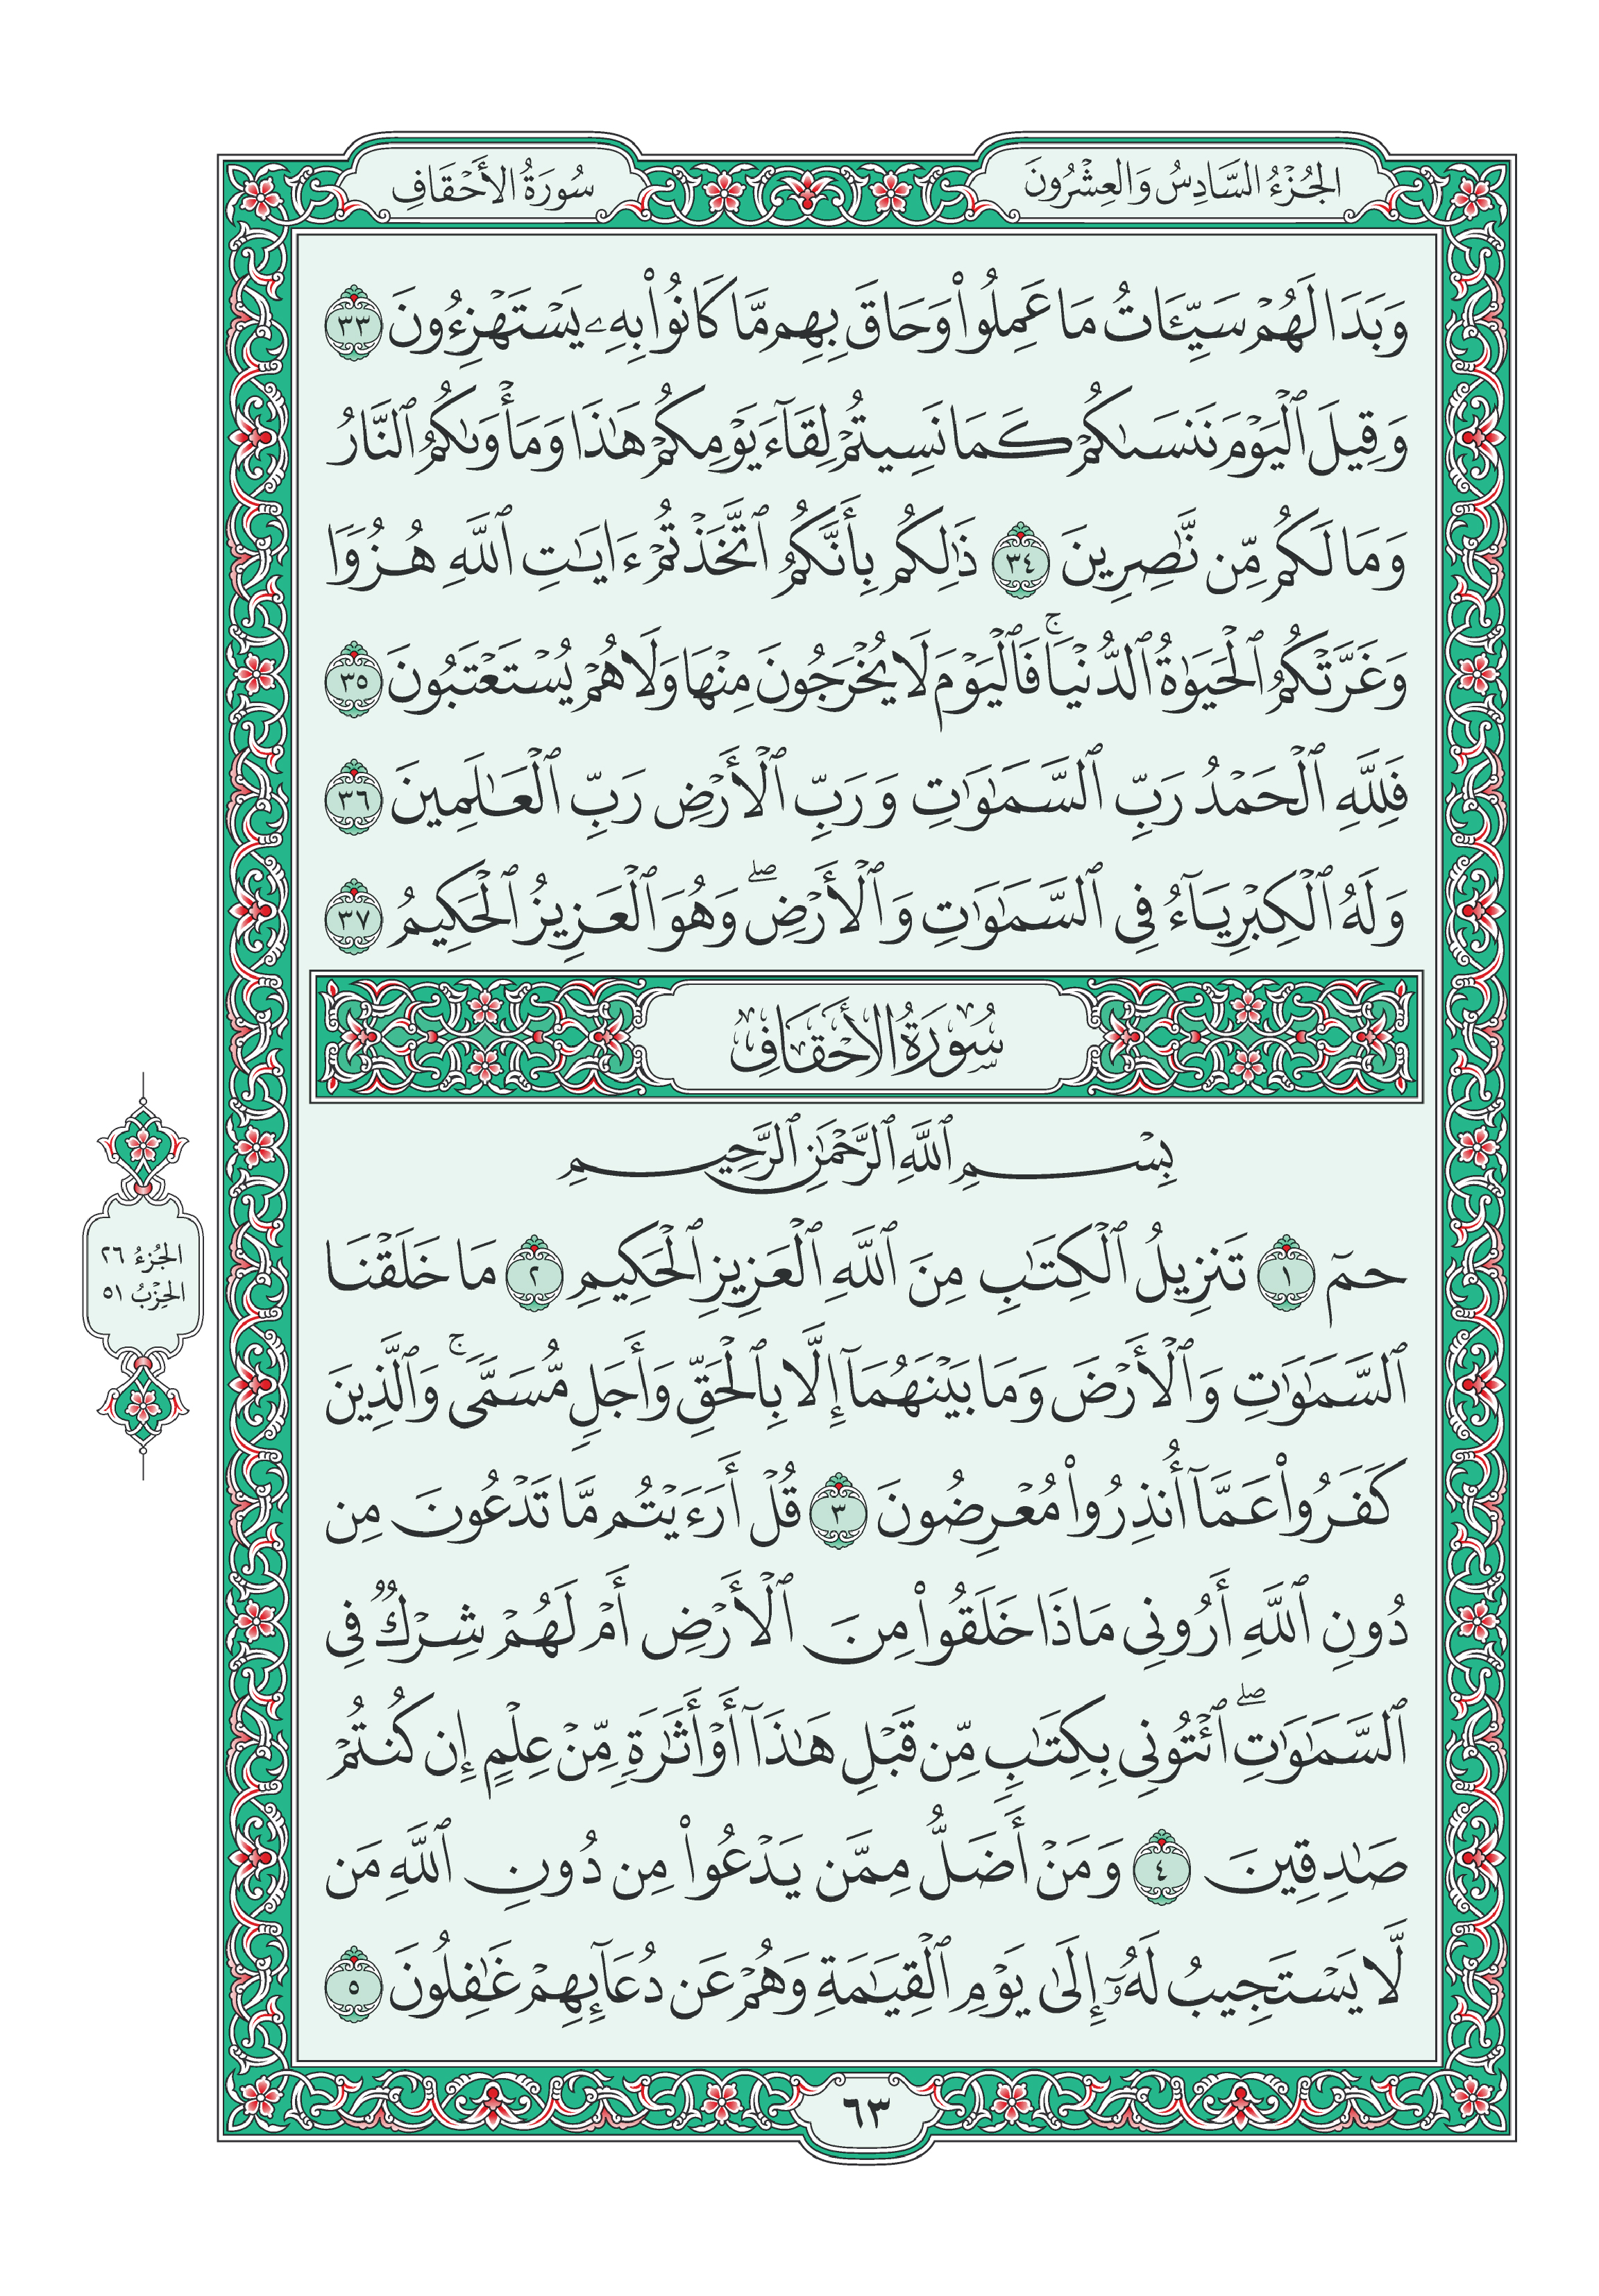 الجُزْءُ السَّادِسُ وَالعِشْرُونَ
سُورَةُ الأَحْقَافِ
وَبَدَا لَهُمْ سَيِّـَٔاتُ مَا عَمِلُوا۟ وَحَاقَ بِهِم مَّا كَانُوا۟ بِهِۦ يَسْتَهْزِءُونَ ٣٣
وَقِيلَ ٱلْيَوْمَ نَنسَىٰكُمْ كَمَا نَسِيتُمْ لِقَآءَ يَوْمِكُمْ هَـٰذَا وَمَأْوَىٰكُمُ ٱلنَّارُ
وَمَا لَكُم مِّن نَّـٰصِرِينَ ٣٤ ذَٰلِكُم بِأَنَّكُمُ ٱتَّخَذْتُمْ ءَايَـٰتِ ٱللَّهِ هُزُوًا
وَغَرَّتْكُمُ ٱلْحَيَوٰةُ ٱلدُّنْيَا ۚ فَٱلْيَوْمَ لَا يُخْرَجُونَ مِنْهَا وَلَا هُمْ يُسْتَعْتَبُونَ ٣٥
فَلِلَّهِ ٱلْحَمْدُ رَبِّ ٱلسَّمَـٰوَٰتِ وَرَبِّ ٱلْأَرْضِ رَبِّ ٱلْعَـٰلَمِينَ ٣٦
وَلَهُ ٱلْكِبْرِيَآءُ فِى ٱلسَّمَـٰوَٰتِ وَٱلْأَرْضِ ۖ وَهُوَ ٱلْعَزِيزُ ٱلْحَكِيمُ ٣٧
سُورَةُ الأَحْقَافِ
بِسْمِ ٱللَّهِ ٱلرَّحْمَـٰنِ ٱلرَّحِيمِ
حمٓ ١ تَنزِيلُ ٱلْكِتَـٰبِ مِنَ ٱللَّهِ ٱلْعَزِيزِ ٱلْحَكِيمِ ٢ مَا خَلَقْنَا
ٱلسَّمَـٰوَٰتِ وَٱلْأَرْضَ وَمَا بَيْنَهُمَآ إِلَّا بِٱلْحَقِّ وَأَجَلٍ مُّسَمًّى ۚ وَٱلَّذِينَ
كَفَرُوا۟ عَمَّآ أُنذِرُوا۟ مُعْرِضُونَ ٣ قُلْ أَرَءَيْتُم مَّا تَدْعُونَ مِن
دُونِ ٱللَّهِ أَرُونِى مَاذَا خَلَقُوا۟ مِنَ ٱلْأَرْضِ أَمْ لَهُمْ شِرْكٌ فِى
ٱلسَّمَـٰوَٰتِ ۖ ٱئْتُونِى بِكِتَـٰبٍ مِّن قَبْلِ هَـٰذَآ أَوْ أَثَـٰرَةٍ مِّنْ عِلْمٍ إِن كُنتُمْ
صَـٰدِقِينَ ٤ وَمَنْ أَضَلُّ مِمَّن يَدْعُوا۟ مِن دُونِ ٱللَّهِ مَن
لَّا يَسْتَجِيبُ لَهُۥٓ إِلَىٰ يَوْمِ ٱلْقِيَـٰمَةِ وَهُمْ عَن دُعَآئِهِمْ غَـٰفِلُونَ ٥
الجُزْءُ ٢٦
الحِزْبُ ٥١
٦٣